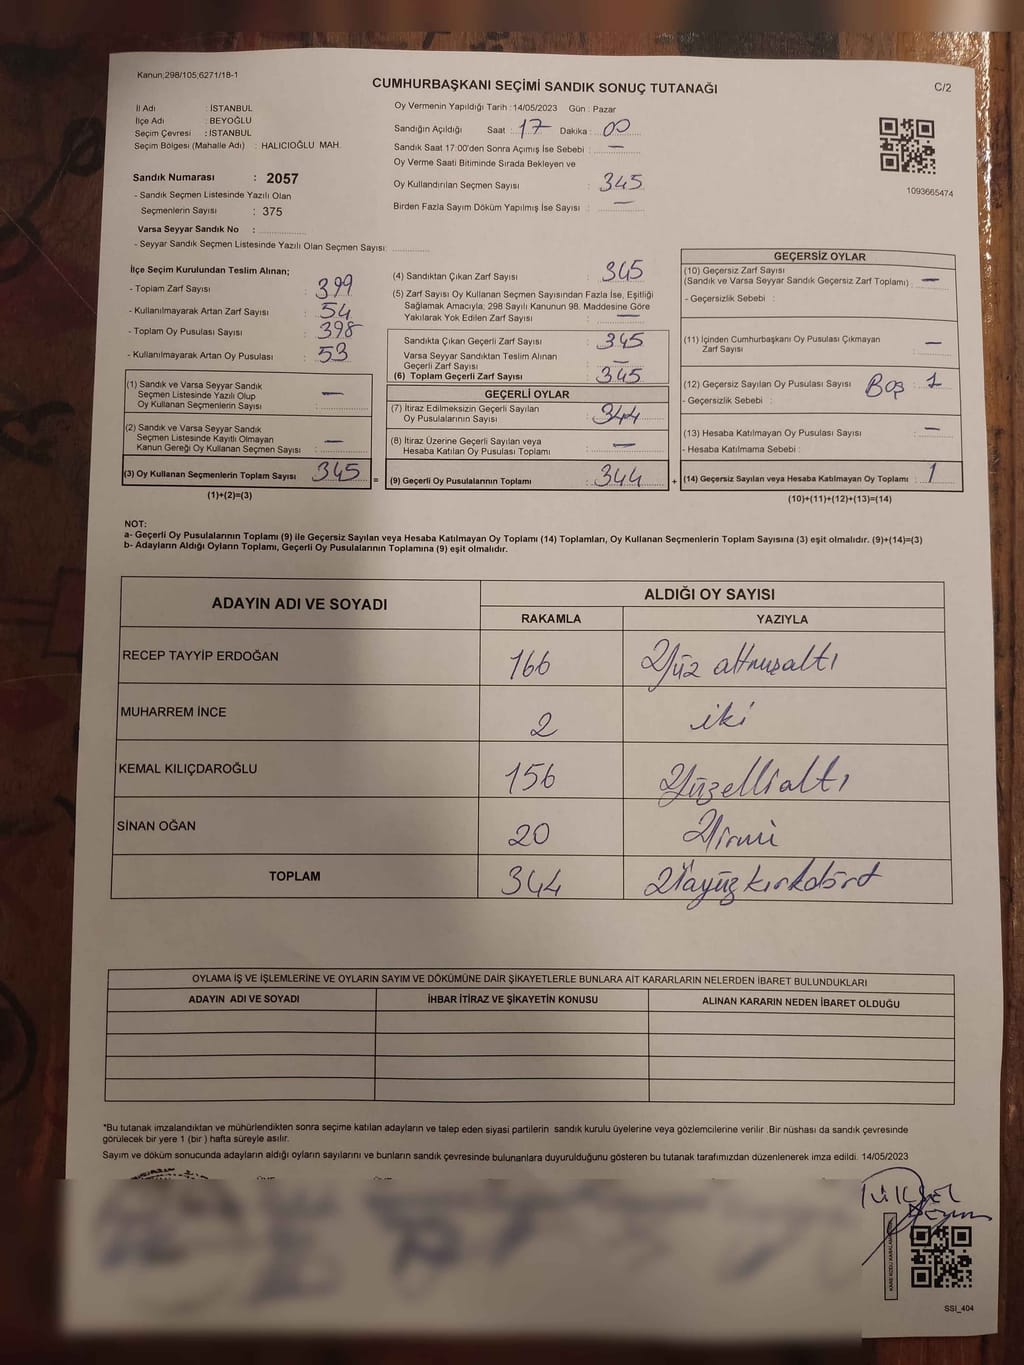 Kanun;298/105,6271/18-1
CUMHURBAŞKANI SEÇİMİ SANDIK SONUÇ TUTANAĞI
C/2
İl Adı : İSTANBUL
İlçe Adı : BEYOĞLU
Seçim Çevresi : İSTANBUL
Seçim Bölgesi (Mahalle Adı) : HALICIOĞLU MAH.
Sandık Numarası : 2057
- Sandık Seçmen Listesinde Yazılı Olan
Seçmenlerin Sayısı : 375
Varsa Seyyar Sandık No :
- Seyyar Sandık Seçmen Listesinde Yazılı Olan Seçmen Sayısı:
Oy Vermenin Yapıldığı Tarih : 14/05/2023 Gün : Pazar
Sandığın Açıldığı Saat : 17 Dakika : 00
Sandık Saat 17:00'den Sonra Açımış İse Sebebi : —
Oy Verme Saati Bitiminde Sırada Bekleyen ve
Oy Kullandırılan Seçmen Sayısı : 345
Birden Fazla Sayım Döküm Yapılmış İse Sayısı : —
1093665474
İlçe Seçim Kurulundan Teslim Alınan;
- Toplam Zarf Sayısı : 399
- Kullanılmayarak Artan Zarf Sayısı : 54
- Toplam Oy Pusulası Sayısı : 398
- Kullanılmayarak Artan Oy Pusulası : 53
(1) Sandık ve Varsa Seyyar Sandık
Seçmen Listesinde Yazılı Olup
Oy Kullanan Seçmenlerin Sayısı : —
(2) Sandık ve Varsa Seyyar Sandık
Seçmen Listesinde Kayıtlı Olmayan
Kanun Gereği Oy Kullanan Seçmen Sayısı : —
(3) Oy Kullanan Seçmenlerin Toplam Sayısı : 345 =
(1)+(2)=(3)
(4) Sandıktan Çıkan Zarf Sayısı : 345
(5) Zarf Sayısı Oy Kullanan Seçmen Sayısından Fazla İse, Eşitliği
Sağlamak Amacıyla; 298 Sayılı Kanunun 98. Maddesine Göre
Yakılarak Yok Edilen Zarf Sayısı : —
Sandıkta Çıkan Geçerli Zarf Sayısı : 345
Varsa Seyyar Sandıktan Teslim Alınan
Geçerli Zarf Sayısı : —
(6) Toplam Geçerli Zarf Sayısı : 345
GEÇERLİ OYLAR
(7) İtiraz Edilmeksizin Geçerli Sayılan
Oy Pusulalarının Sayısı : 344
(8) İtiraz Üzerine Geçerli Sayılan veya
Hesaba Katılan Oy Pusulası Toplamı : —
(9) Geçerli Oy Pusulalarının Toplamı : 344 +
GEÇERSİZ OYLAR
(10) Geçersiz Zarf Sayısı
(Sandık ve Varsa Seyyar Sandık Geçersiz Zarf Toplamı) : —
- Geçersizlik Sebebi :
(11) İçinden Cumhurbaşkanı Oy Pusulası Çıkmayan
Zarf Sayısı : —
(12) Geçersiz Sayılan Oy Pusulası Sayısı : Boş 1
- Geçersizlik Sebebi :
(13) Hesaba Katılmayan Oy Pusulası Sayısı : —
- Hesaba Katılmama Sebebi :
(14) Geçersiz Sayılan veya Hesaba Katılmayan Oy Toplamı : 1
(10)+(11)+(12)+(13)=(14)
NOT:
a- Geçerli Oy Pusulalarının Toplamı (9) ile Geçersiz Sayılan veya Hesaba Katılmayan Oy Toplamı (14) Toplamları, Oy Kullanan Seçmenlerin Toplam Sayısına (3) eşit olmalıdır. (9)+(14)=(3)
b- Adayların Aldığı Oyların Toplamı, Geçerli Oy Pusulalarının Toplamına (9) eşit olmalıdır.
ADAYIN ADI VE SOYADI ALDIĞI OY SAYISI
RAKAMLA YAZIYLA
RECEP TAYYİP ERDOĞAN 166 Yüz altmışaltı
MUHARREM İNCE 2 iki
KEMAL KILIÇDAROĞLU 156 Yüzellialtı
SİNAN OĞAN 20 Yirmi
TOPLAM 344 kırkdört
OYLAMA İŞ VE İŞLEMLERİNE VE OYLARIN SAYIM VE DÖKÜMÜNE DAİR ŞİKAYETLERLE BUNLARA AİT KARARLARIN NELERDEN İBARET BULUNDUKLARI
ADAYIN ADI VE SOYADI İHBAR İTİRAZ VE ŞİKAYETİN KONUSU ALINAN KARARIN NEDEN İBARET OLDUĞU
*Bu tutanak imzalandıktan ve mühürlendikten sonra seçime katılan adayların ve talep eden siyasi partilerin sandık kurulu üyelerine veya gözlemcilerine verilir .Bir nüshası da sandık çevresinde
görülecek bir yere 1 (bir) hafta süreyle asılır.
Sayım ve döküm sonucunda adayların aldığı oyların sayılarını ve bunların sandık çevresinde bulunanlara duyurulduğunu gösteren bu tutanak tarafımızdan düzenlenerek imza edildi. 14/05/2023
SSI_404